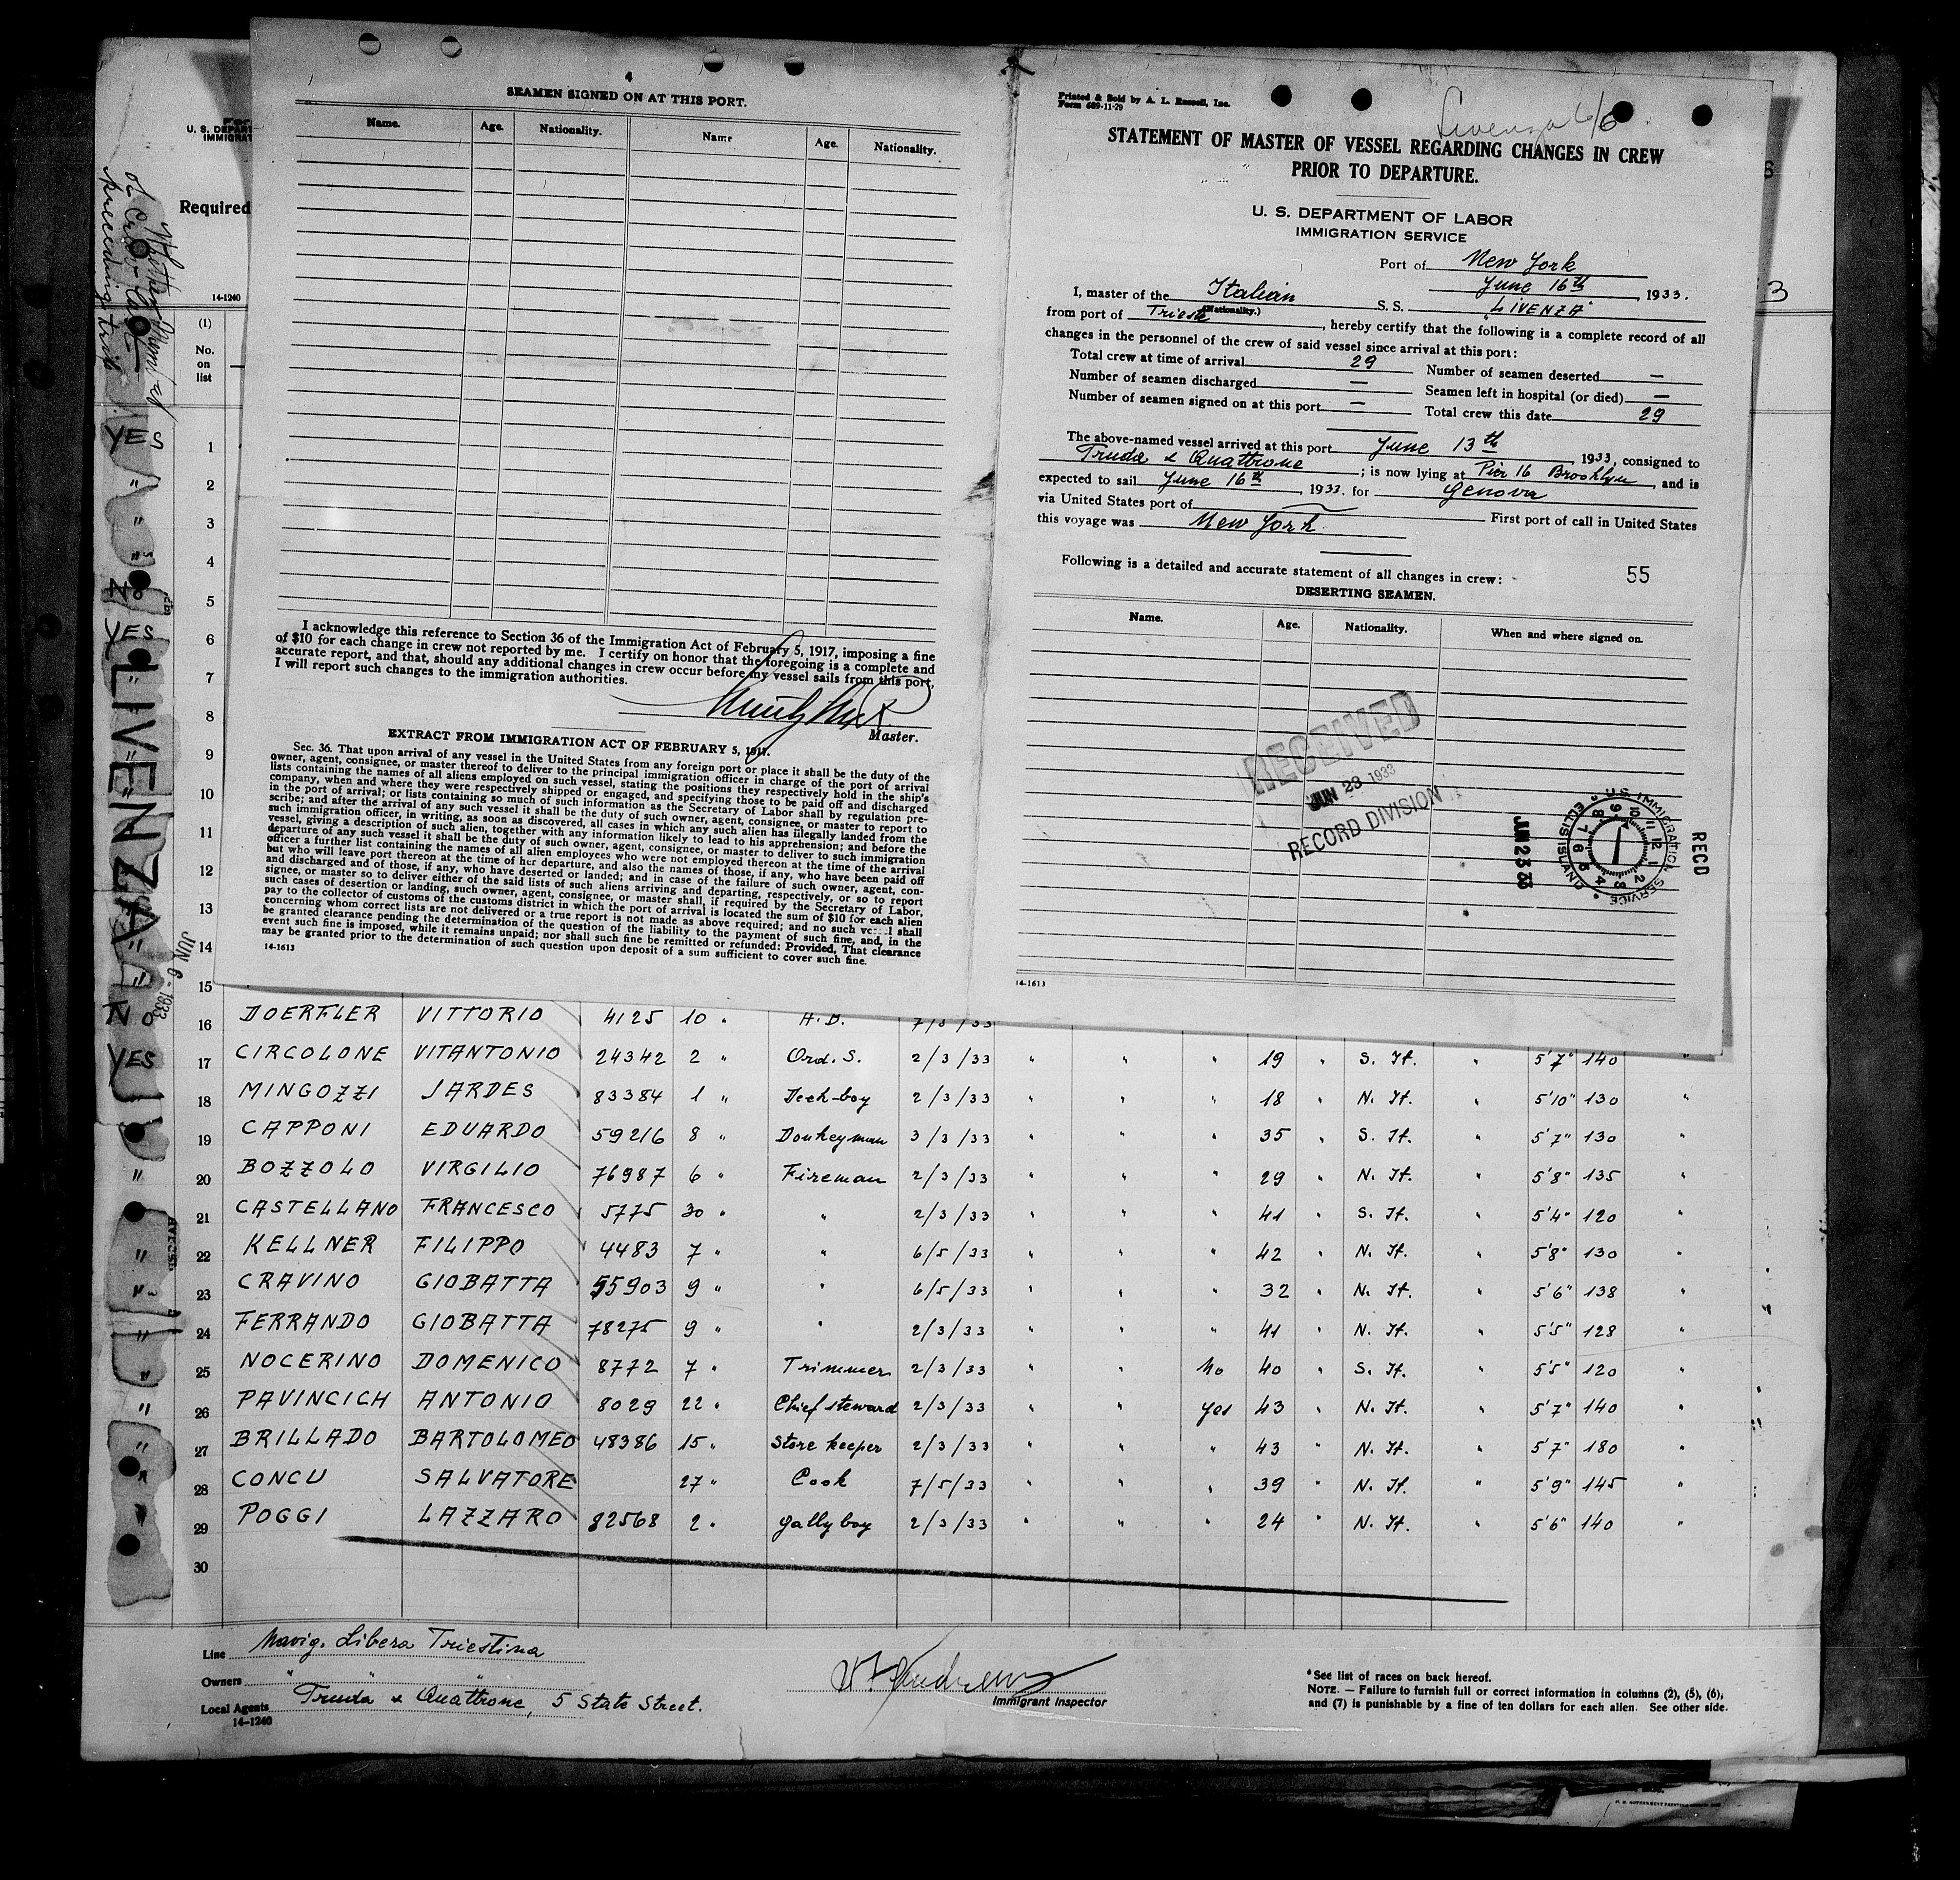 4
SEAMEN SIGNED ON AT THIS PORT.
Name. Age. Nationality. Name Age. Nationality.
I acknowledge this reference to Section 36 of the Immigration Act of February 5, 1917, imposing a fine
of $10 for each change in crew not reported by me. I certify on honor that the foregoing is a complete and
accurate report, and that, should any additional changes in crew occur before my vessel sails from this port,
I will report such changes to the immigration authorities.
Master.
EXTRACT FROM IMMIGRATION ACT OF FEBRUARY 5, 1917.
Sec. 36. That upon arrival of any vessel in the United States from any foreign port or place it shall be the duty of the
owner, agent, consignee, or master thereof to deliver to the principal immigration officer in charge of the port of arrival
lists containing the names of all aliens employed on such vessel, stating the positions they respectively hold in the ship's
company, when and where they were respectively shipped or engaged, and specifying those to be paid off and discharged
in the port of arrival; or lists containing so much of such information as the Secretary of Labor shall by regulation pre-
scribe; and after the arrival of any such vessel it shall be the duty of such owner, agent, consignee, or master to report to
such immigration officer, in writing, as soon as discovered, all cases in which any such alien has illegally landed from the
vessel, giving a description of such alien, together with any information likely to lead to his apprehension; and before the
departure of any such vessel it shall be the duty of such owner, agent, consignee, or master to deliver to such immigration
officer a further list containing the names of all alien employees who were not employed thereon at the time of the arrival
but who will leave port thereon at the time of her departure, and also the names of those, if any, who have been paid off
and discharged and of those, if any, who have deserted or landed; and in case of the failure of such owner, agent, con-
signee, or master so to deliver either of the said lists of such aliens arriving and departing, respectively, or so to report
such cases of desertion or landing, such owner, agent, consignee, or master shall, if required by the Secretary of Labor,
pay to the collector of customs of the customs district in which the port of arrival is located the sum of $10 for each alien
concerning whom correct lists are not delivered or a true report is not made as above required; and no such vessel shall
be granted clearance pending the determination of the question of the liability to the payment of such fine, and, in the
event such fine is imposed, while it remains unpaid; nor shall such fine be remitted or refunded: Provided, That clearance
may be granted prior to the determination of such question upon deposit of a sum sufficient to cover such fine.
14-1613
Printed & Sold by A. L. Russell, Inc.
Form 689-11-29
Livenza 6/6
STATEMENT OF MASTER OF VESSEL REGARDING CHANGES IN CREW
PRIOR TO DEPARTURE.
U. S. DEPARTMENT OF LABOR
IMMIGRATION SERVICE
Port of New York
June 16th, 1933.
I, master of the Italian S.S. LIVENZA
(Nationality.)
from port of Trieste, hereby certify that the following is a complete record of all
changes in the personnel of the crew of said vessel since arrival at this port:
Total crew at time of arrival 29 Number of seamen deserted —
Number of seamen discharged — Seamen left in hospital (or died) —
Number of seamen signed on at this port — Total crew this date 29
The above-named vessel arrived at this port June 13th, 1933, consigned to
Truda & Quattrone; is now lying at Pier 16 Brooklyn, and is
expected to sail June 16th, 1933. for Genova
via United States port of — First port of call in United States
this voyage was New York
Following is a detailed and accurate statement of all changes in crew: 55
DESERTING SEAMEN.
Name. Age. Nationality. When and where signed on.
RECEIVED
JUN 23 1933
RECORD DIVISION
RECD
U.S. IMMIGRATION SERVICE
ELLIS ISLAND
JUN 23 33
14-1613
U. S. DEPART
IMMIGRAT
Required
14-1240
(1)
No.
on
list
preceding trip
YES
"
YES
LIVENZA
JUN 6 - 1933
NO
YES
1
2
3
4
5
6
7
8
9
10
11
12
13
14
15
16 DOERFLER VITTORIO 4125 10 "
17 CIRCOLONE VITANTONIO 24342 2 " Ord. S. 2/3/33 " " " 19 " S. It. " 5'7" 140 "
18 MINGOZZI JARDES 83384 1 " Deck-boy 2/3/33 " " " 18 " N. It. " 5'10" 130 "
19 CAPPONI EDUARDO 59216 8 " Donkeyman 3/3/33 " " " 35 " S. It. " 5'7" 130 "
20 BOZZOLO VIRGILIO 76987 6 " Fireman 2/3/33 " " " 29 " N. It. " 5'8" 135 "
21 CASTELLANO FRANCESCO 5775 30 " " 2/3/33 " " " 41 " S. It. " 5'4" 120 "
22 KELLNER FILIPPO 4483 7 " " 6/5/33 " " " 42 " N. It. " 5'8" 130 "
23 CRAVINO GIOBATTA 55903 9 " " 6/5/33 " " " 32 " N. It. " 5'6" 138 "
24 FERRANDO GIOBATTA 78275 9 " " 2/3/33 " " " 41 " N. It. " 5'5" 128 "
25 NOCERINO DOMENICO 8772 7 " Trimmer 2/3/33 " " No 40 " S. It. " 5'5" 120 "
26 PAVINCICH ANTONIO 8029 22 " Chief steward 2/3/33 " " yes 43 " N. It. " 5'7" 140 "
27 BRILLADO BARTOLOMEO 48386 15 " Store keeper 2/3/33 " " " 43 " N. It. " 5'7" 180 "
28 CONCU SALVATORE 27 " Cook 7/5/33 " " " 39 " N. It. " 5'9" 145 "
29 POGGI LAZZARO 82568 2 " gally boy 2/3/33 " " " 24 " N. It. " 5'6" 140 "
30
Line Navig. Libera Triestina
Owners " "
Local Agents Truda & Quattrone, 5 State Street.
14-1240
Immigrant Inspector
*See list of races on back hereof.
NOTE. — Failure to furnish full or correct information in columns (2), (5), (6),
and (7) is punishable by a fine of ten dollars for each alien. See other side.